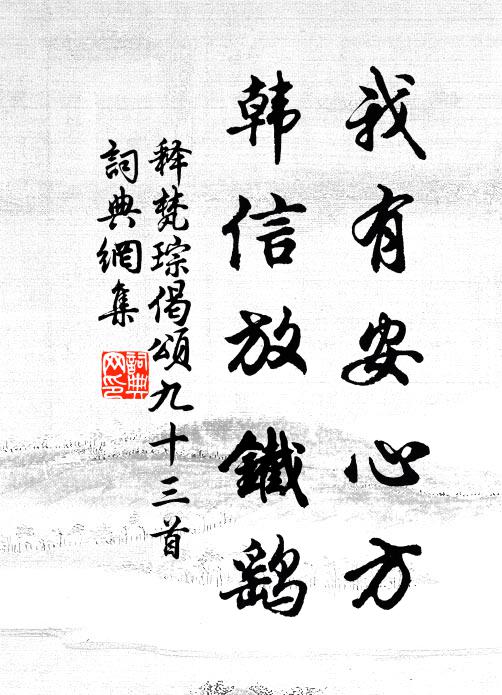 我有安心方
韩信放鐵鹞
释梵琮偈頌九十三首
詞典網集
詞典网印